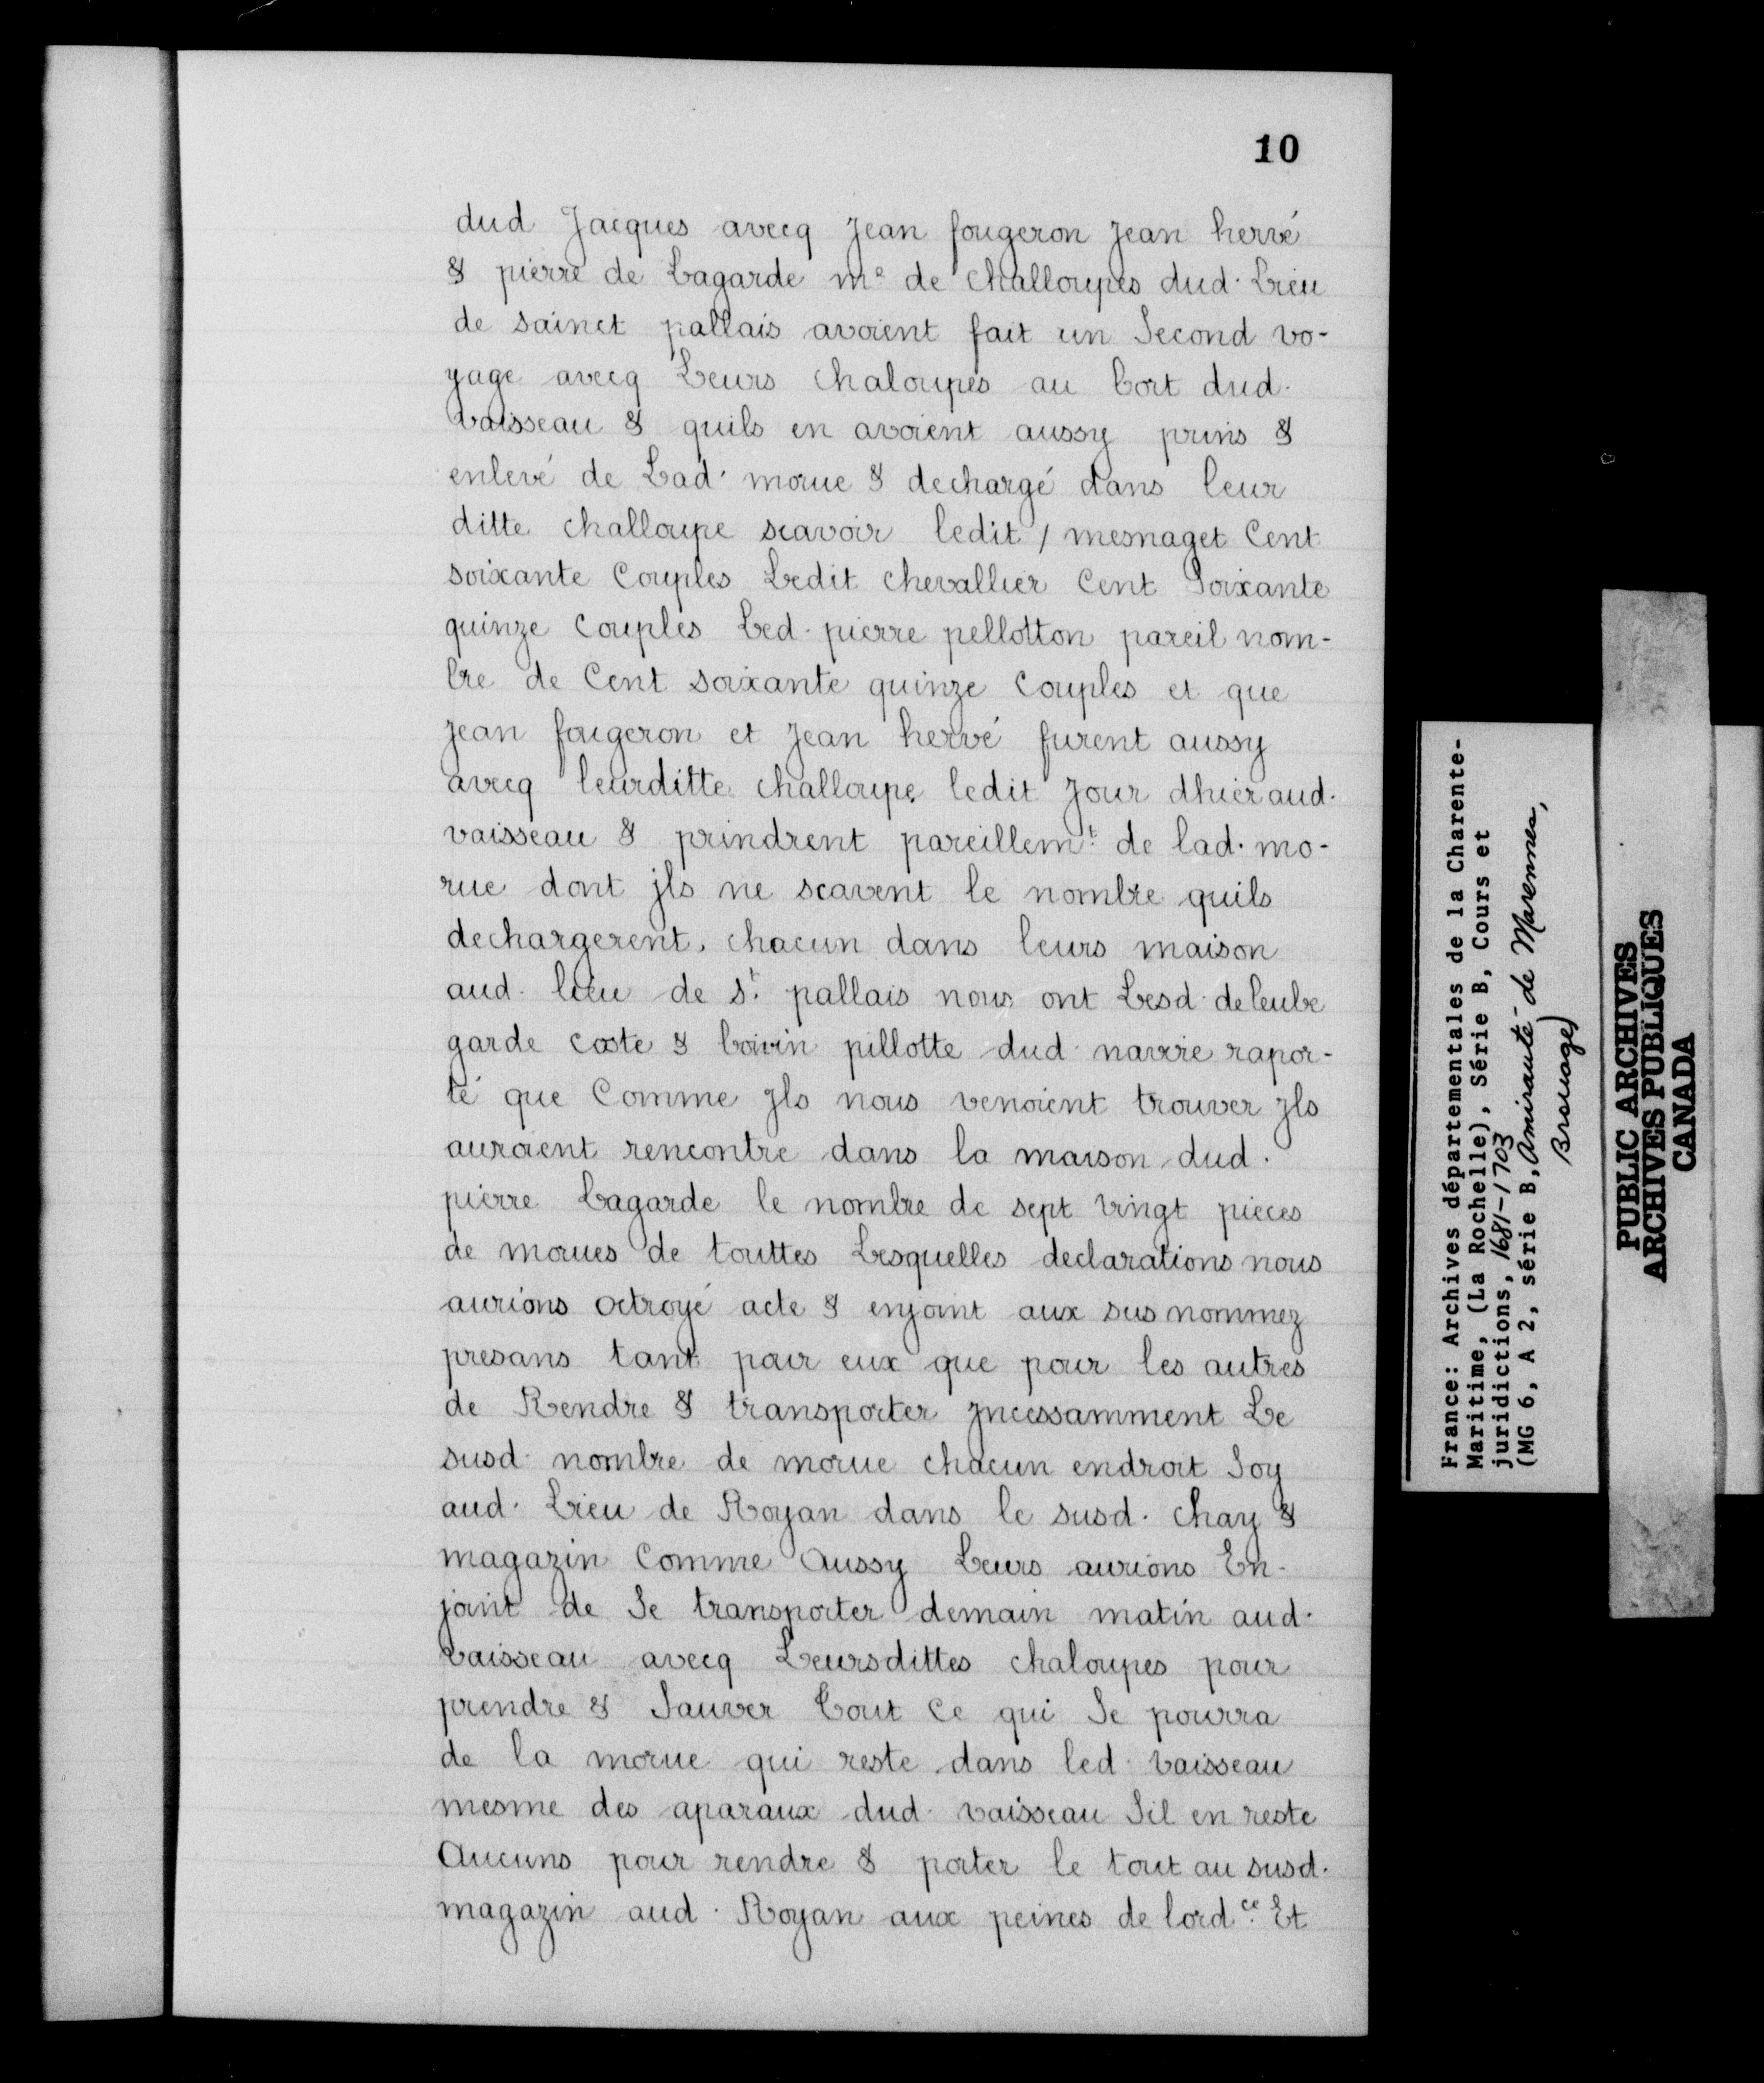 10
dud Jacques avecq Jean fougeron Jean hervé
& pierre de Lagarde mᵉ de challoupes dud. Lieu
de sainct pallais avoient fait un Second vo-
yage avecq Leurs chaloupes au bort dud.
vaisseau & quils en avoient aussy prins &
enlevé de Lad. morue & dechargé dans leur
ditte challoupe scavoir ledit / mesnaget Cent
soixante Couples Ledit chevallier Cent Soixante
quinze Couples Led. pierre pellotton pareil nom-
bre de Cent soixante quinze Couples et que
Jean fougeron et Jean hervé furent aussy
avecq leurditte challoupe ledit Jour dhier aud.
vaisseau & prindrent pareillemᵗ de lad. mo-
rue dont jls ne scavent le nombre quils
dechargerent, chacun dans leurs maison
aud. lieu de Sᵗ pallais nous ont Lesd. deleube
garde coste & boivin pillotte dud. navire rapor-
té que Comme Jls nous venoient trouver Jls
auroient rencontre dans la maison dud.
pierre Lagarde le nombre de sept vingt pieces
de morues de touttes Lesquelles declarations nous
aurions octroyé acte & enjoint aux sus nommez
presans tant pour eux que pour les autres
de Rendre & transporter Jncessamment Le
susd. nombre de morue chacun endroit Soy
aud. Lieu de Royan dans le susd. chay &
magazin Comme Aussy Leurs aurions En-
joint de Se transporter demain matin aud.
vaisseau avecq Leursdittes chaloupes pour
prendre & Sauver tout Ce qui Se pourra
de la morue qui reste dans led. vaisseau
mesme des aparaux dud. vaisseau Sil en reste
Aucuns pour rendre & porter le tout au susd.
magazin aud. Royan aux peines de lordᶜᵉ. Et
France: Archives départementales de la Charente-
Maritime, (La Rochelle), Série B, Cours et
juridictions, 1681-1703
(MG 6, A 2, série B, Amirauté de Marennes,
Brouage)
PUBLIC ARCHIVES
ARCHIVES PUBLIQUES
CANADA